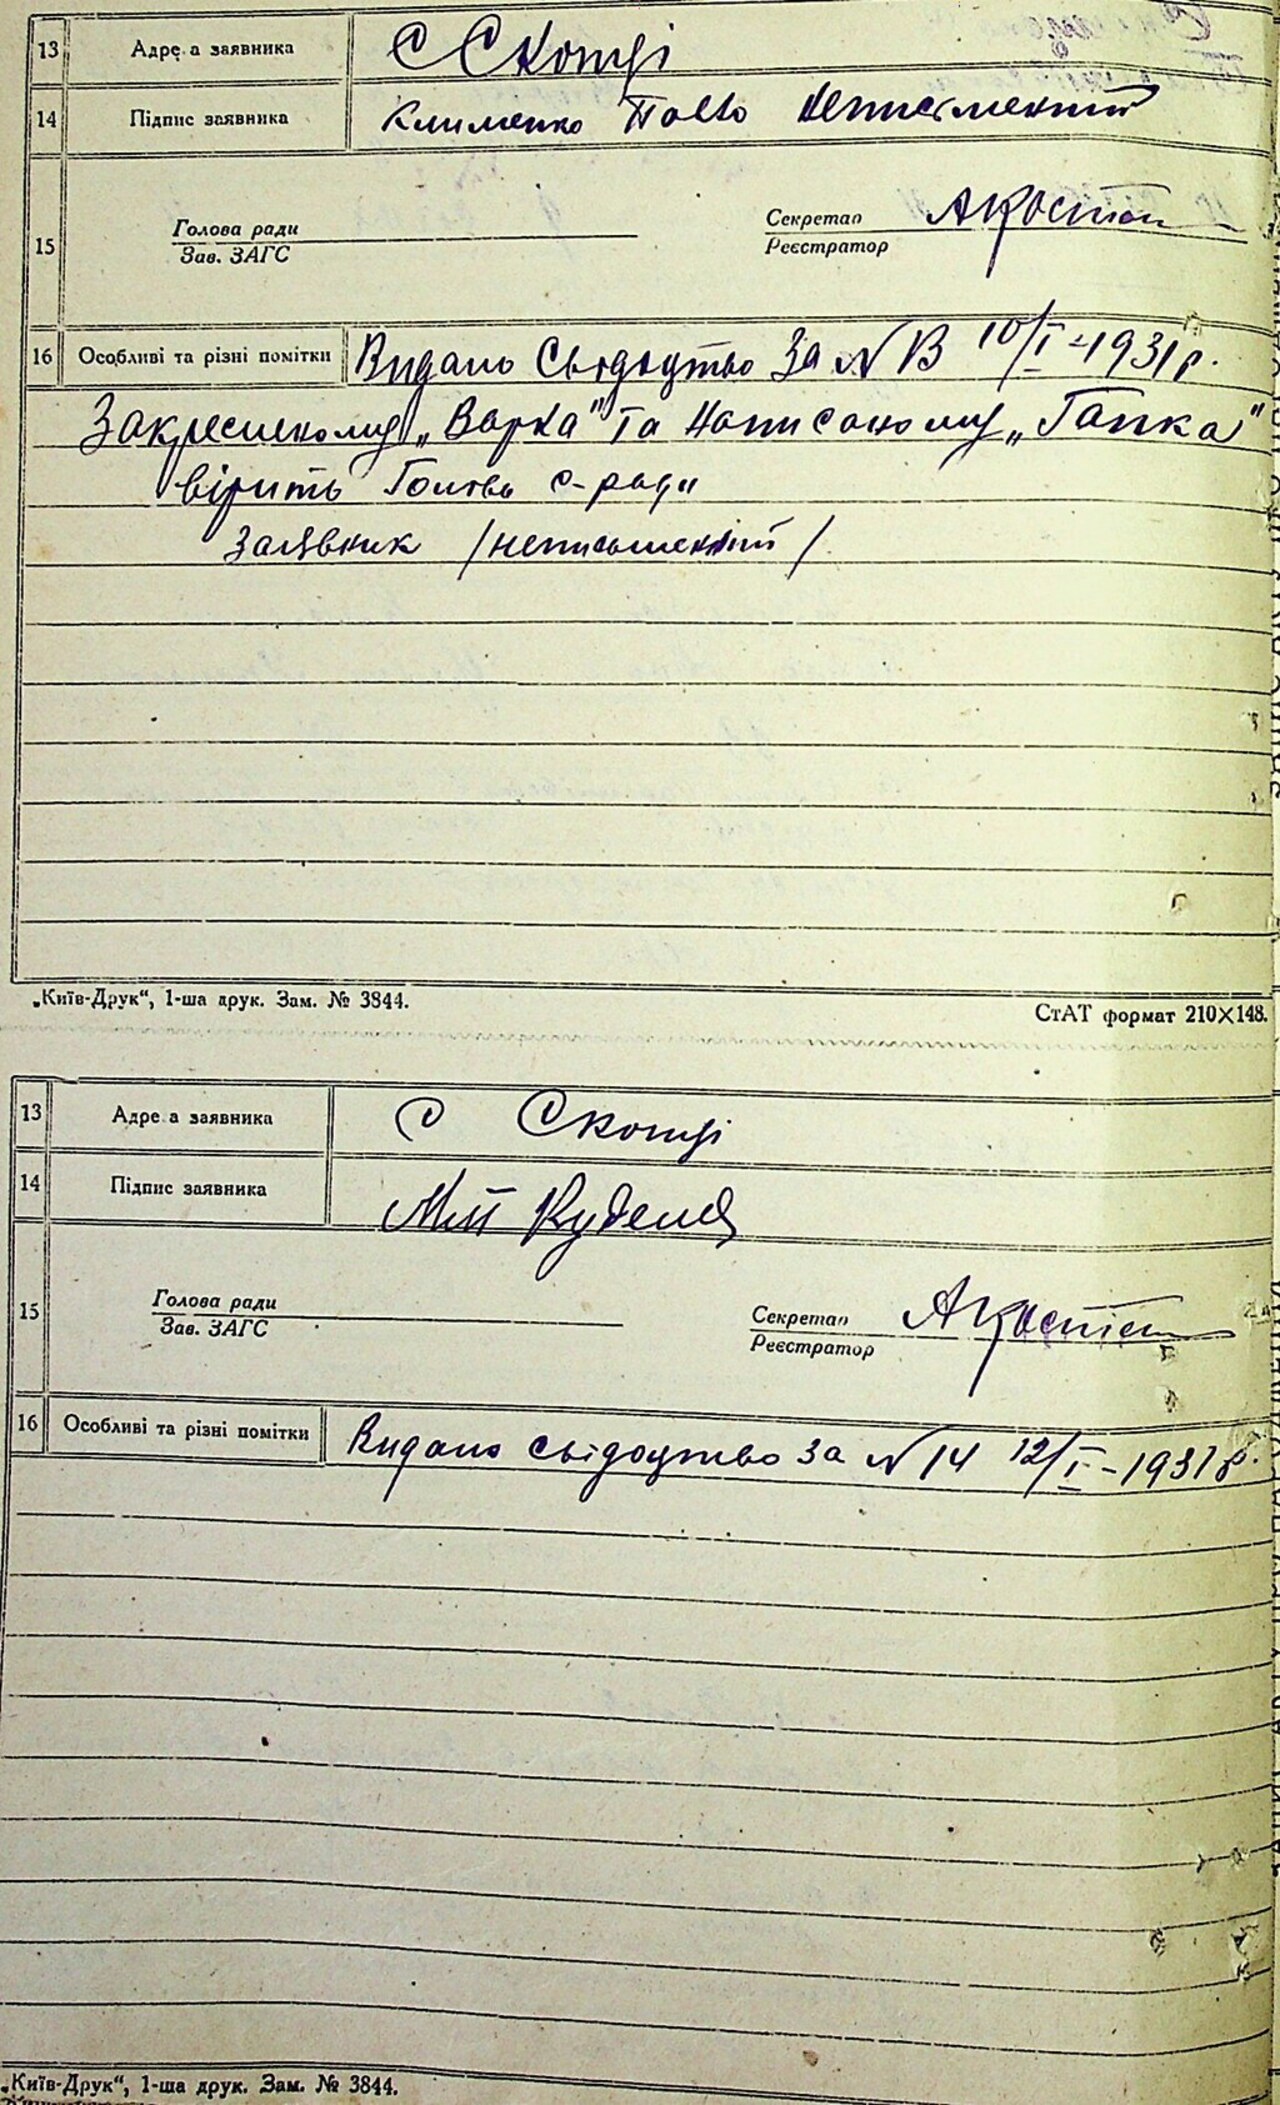 13 Адре а заявника с Скотці
14 Підпис заявника Клименко Павло неписьменний
15 Голова ради Секретар
Зав. ЗАГС Реєстратор
16 Особливі та різні помітки Видано свідоцтво за N 13 10/I-1931 р.
Закресленому „Варка" та написаному „Гапка"
вірить Голова с-ради
Заявник /неписьменний/
„Київ-Друк“, 1-ша друк. Зам. № 3844. СтАТ формат 210×148.
13 Адре а заявника с Скотці
14 Підпис заявника Куделя
15 Голова ради Секретар
Зав. ЗАГС Реєстратор
16 Особливі та різні помітки Видано свідоцтво за N 14 12/I-1931 р.
„Київ-Друк“, 1-ша друк. Зам. № 3844.